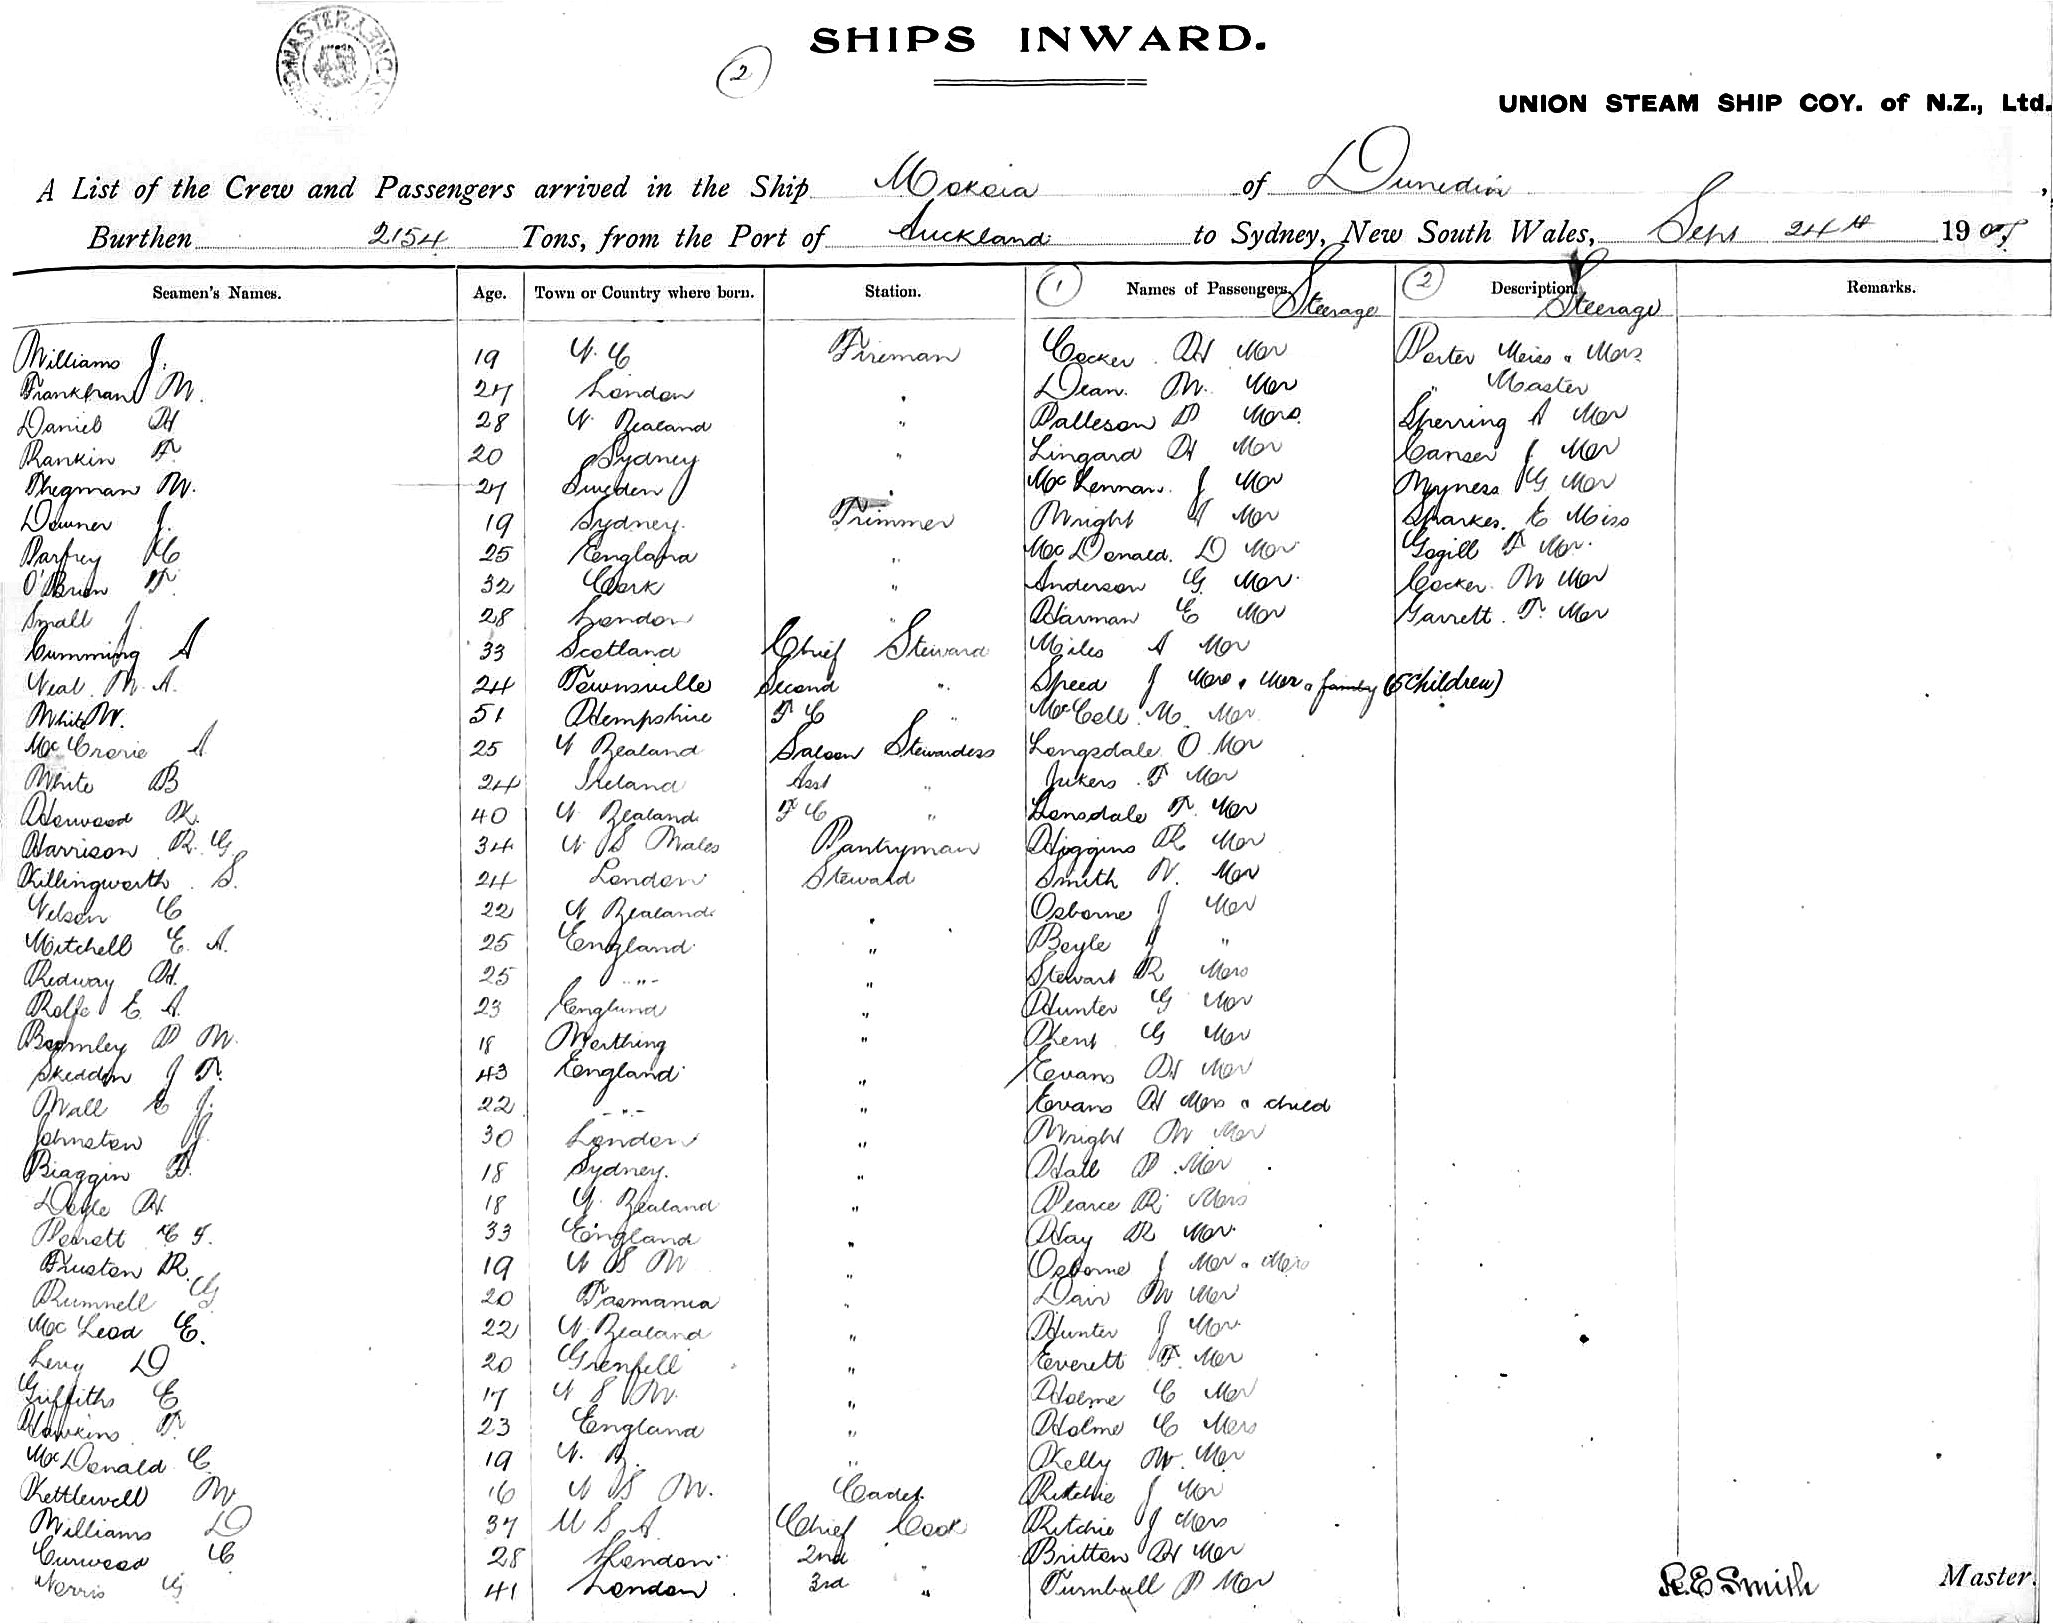 SHIPS INWARD.
2
UNION STEAM SHIP COY. of N.Z., Ltd.
A List of the Crew and Passengers arrived in the Ship Mokoia of Dunedin,
Burthen 2154 Tons, from the Port of Auckland to Sydney, New South Wales, Sept 24th 190
Seamen's Names. Age. Town or Country where born. Station. 1 Names of Passengers. Steerage 2 Description Steerage Remarks.
Williams J. 19 Fireman Cocker H Mr Porter Miss & Mrs
M. 27 London " Dean. W. Mr " Master
Daniel H 28 N Zealand " P Mrs Sperring A Mr
Rankin F 20 Sydney " Lingard H Mr J Mr
W. 27 Sweden " McLennan. J Mr G Mr
Downer J. 19 Sydney. Trimmer Wright Mr Sparkes. E Miss
Parfrey 25 England " McDonald. D Mr Gogill F Mr
O'Brien F 32 Cork " Anderson G Mr Cocker W Mr
Small J. 28 London " Harman E Mr Garrett. F. Mr
Cumming A 33 Scotland Chief Steward Miles A Mr
Neal. W. A. 24 Townsville Second " Speed J Mrs & Mr & family (5 Children)
White W. 51 Hempshire F C " McCall. M. Mr
McCrorie A 25 N Zealand Saloon Stewardess Longsdale O Mr
White B 24 Ireland Asst " Jukers F Mr
Horwood K. 40 N Zealand F C " Lonsdale F. Mr
Harrison R. G 34 N S Wales Pantryman Higgins R Mr
Killingworth S. 24 London Steward Smith W. Mr
Nelson C 22 N Zealand " Osborne J Mr
Mitchell E. A. 25 England " Boyle J "
Redway H. 25 -"- " Stewart R Mrs
Rolfe E A. 23 England " Hunter G Mr
Bromley P W. 18 Worthing " Kent G Mr
Skeddon J F. 43 England " Evans H Mr
Wall E J. 22 -"- " Evans H Mrs & child
Johnston J. 30 London " Wright W Mr
Biaggin 18 Sydney. " Hall P Mr
Doyle H. 18 N. Zealand " Pearce R Mrs
Perrett C J. 33 England " Hay R Mr
Fruston R. 19 N S W " Osborne J Mr & Mrs
Rumnell G 20 Tasmania " W Mr
McLeod E. 22 N. Zealand " Hunter J Mr
Levy D 20 Grenfell " Everett F. Mr
Griffiths E 17 N S W. " Holme C Mr
Hawkins F 23 England " Holme C Mrs
McDonald C. 19 N. Z. " Kelly W. Mr
Kettlewell W 16 N S W. Cadet. Ritchie J Mr
Williams D 37 U S A. Chief Cook Ritchie J Mrs
Curwood C. 28 London 2nd " Britton H Mr
Norris G 41 London 3rd " Turnbull P Mr
R. E Smith Master.